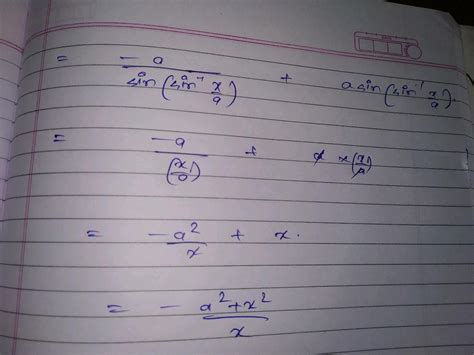 = -a / sin(sin⁻¹ x/a) + a sin(sin⁻¹ x/a).
= -a / (x/a) + a × (x/a)
= -a² / x + x.
= - a² + x² / x